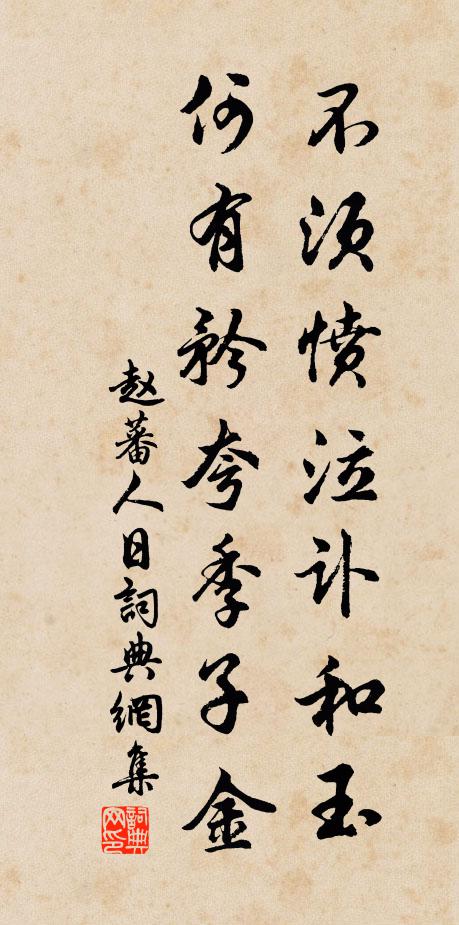 不須憤泣卞和玉
何有矜夸季子金
赵蕃人日詞典網集
詞典网印